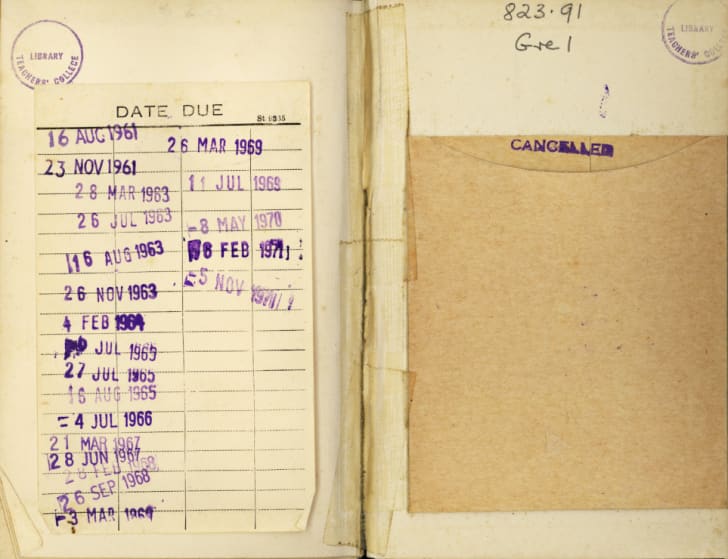 LIBRARY
TEACHERS' COLLEGE
DATE DUE
16 AUG 1961
23 NOV 1961
28 MAR 1963
26 JUL 1963
16 AUG 1963
26 NOV 1963
4 FEB 1964
JUL 1965
27 JUL 1965
16 AUG 1965
-4 JUL 1966
21 MAR 1967
28 JUN 1967
FEB 1968
26 SEP 1968
-3 MAR 1969
26 MAR 1969
11 JUL 1969
-8 MAY 1970
FEB 1971
-5 NOV
823.91
Gre 1
LIBRARY
TEACHERS'
CANCELLED